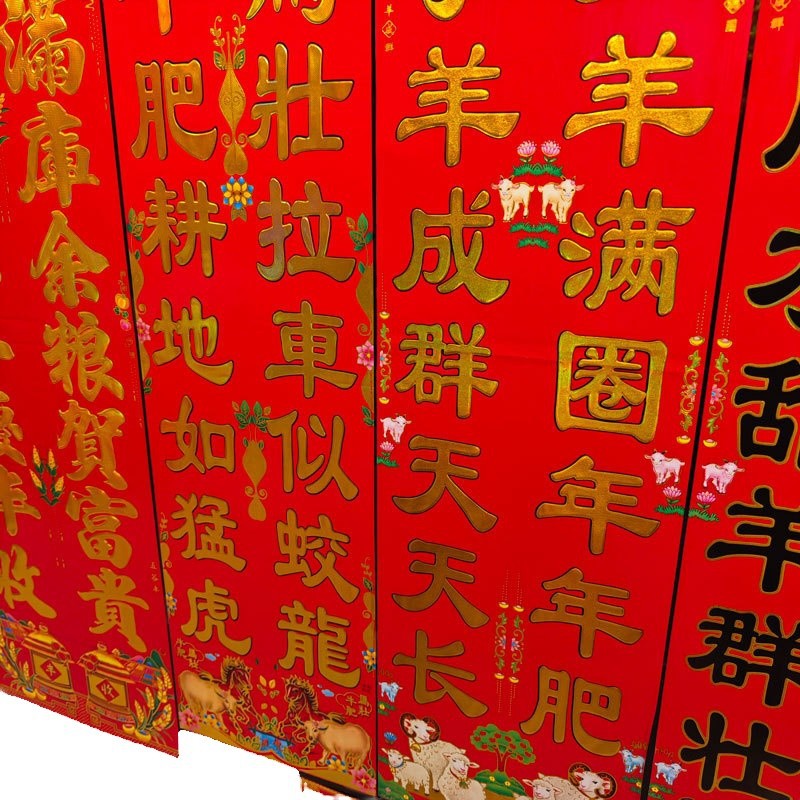 羊群壮
羊满圈年年肥
羊成群天天长
馬壯拉車似蛟龍
牛肥耕地如猛虎
滿庫余粮賀富貴
收